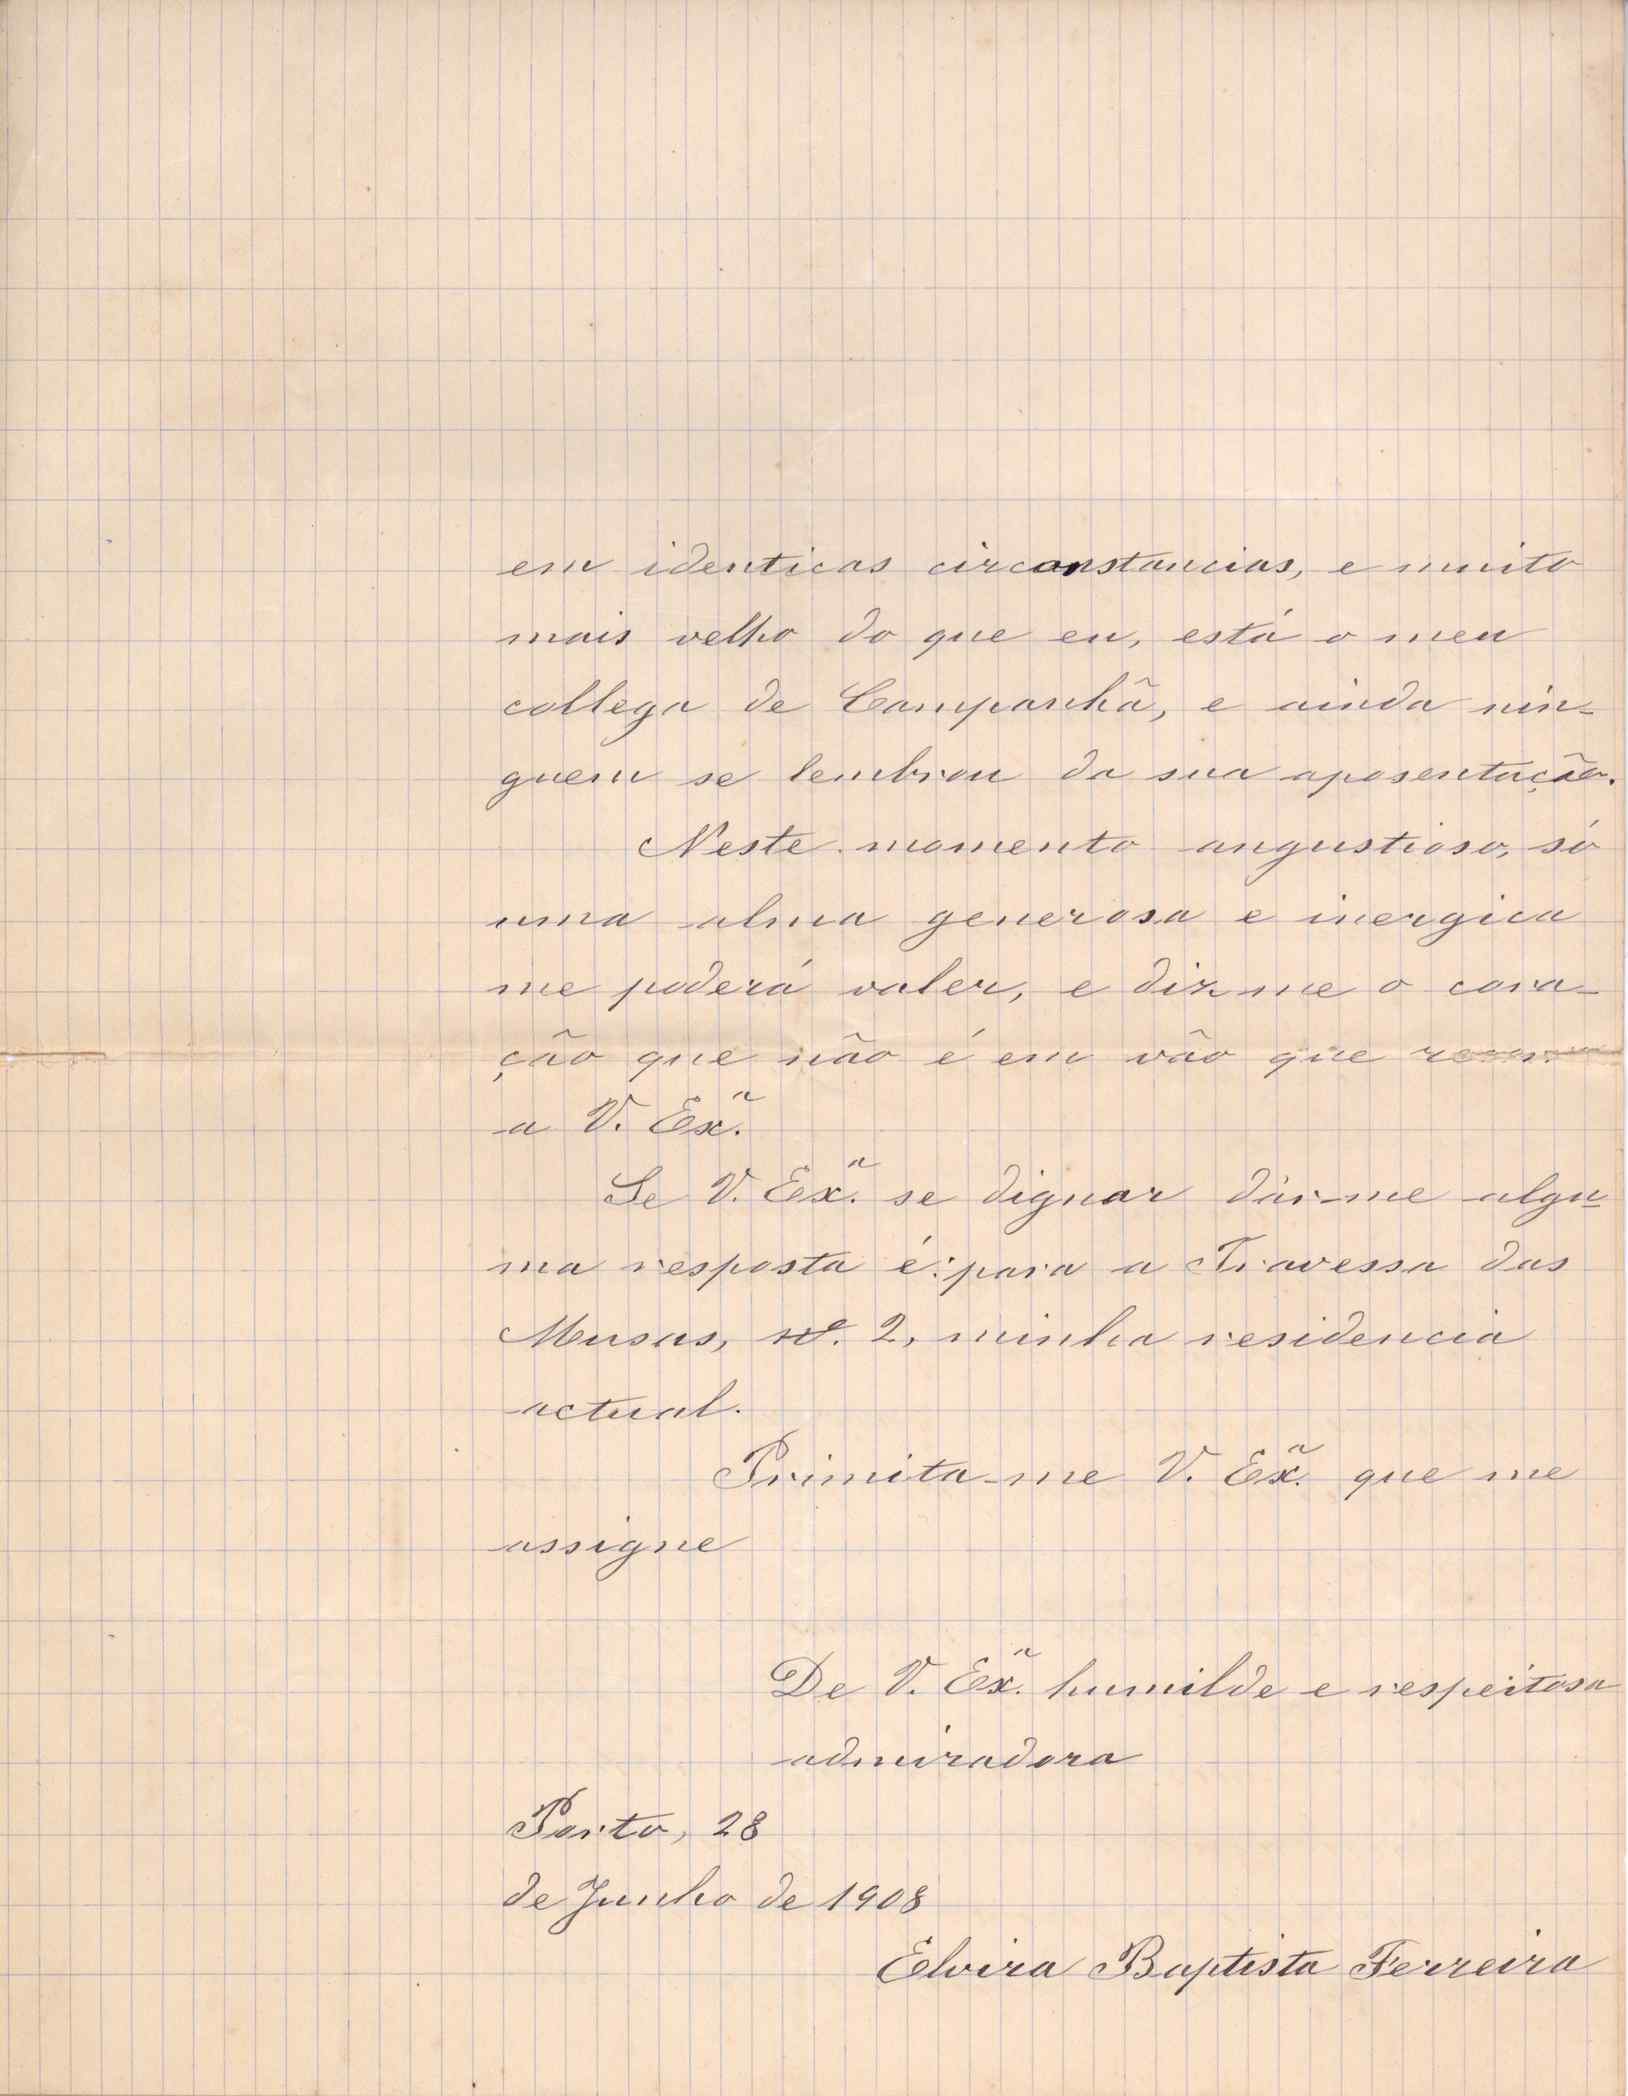 em identicas circonstancias, e muito
mais velho do que eu, está o meu
collega de Campanhã, e ainda nin=
guem se lembrou da sua aposentação.
Neste momento angustioso, só
uma alma generosa e inergica
me poderá valer, e diz-me o cora-
ção que não é em vão que
a V. Ex.ª
Se V. Ex.ª se dignar dár-me algu=
ma resposta é: para a Travessa das
Musas, 2, minha residencia
actual.
Primita-me V. Ex.ª que me
assigne
De V. Ex.ª humilde e respeitosa
admiradora
Porto, 28
de Junho de 1908
Elvira Baptista Ferreira